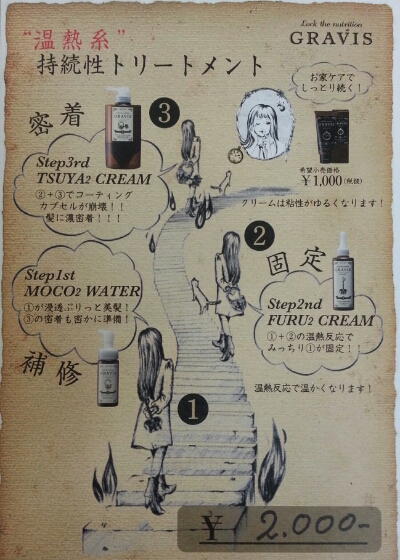 Lock the nutrition
GRAVIS
“温熱系”
持続性トリートメント
お家ケアで
しっとり続く!
希望小売価格
¥1,000(税抜)
クリームは粘性がゆるくなります!
密着
3
Step3rd
TSUYA2 CREAM
②+③でコーティング
カプセルが崩壊!!
髪に濃密着!!!
2
固定
Step2nd
FURU2 CREAM
①+②の温熱反応で
みっちり①が固定!!
温熱反応で温かくなります!
Step1st
MOCO2 WATER
①が浸透ぷりっと美髪!
③の密着も密かに準備!
補修
1
¥ 2.000-